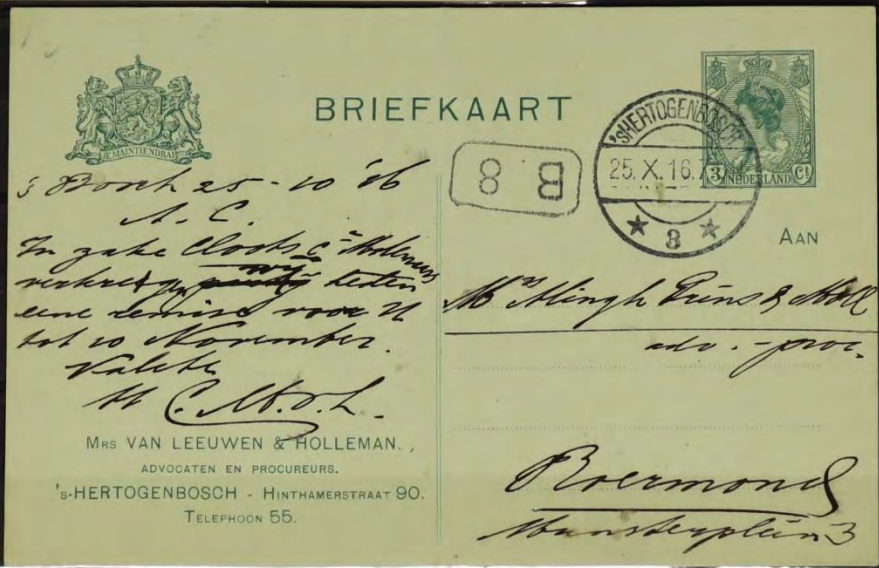 BRIEFKAART
JE MAINTIENDRAI
's HERTOGENBOSCH
25.X.16.7
3
3 NEDERLAND Ct
8 B
's Bosch 25-10 '16
A. C.
In zake Cloots c
verkregen wij heden
eene remise voor U
tot 10 November.
Valete
MRS VAN LEEUWEN & HOLLEMAN.,
ADVOCATEN EN PROCUREURS.
's-HERTOGENBOSCH - HINTHAMERSTRAAT 90.
TELEPHOON 55.
AAN
Mrs Alingh Prins & Moll
adv. - proc.
Roermond
Munsterplein 3